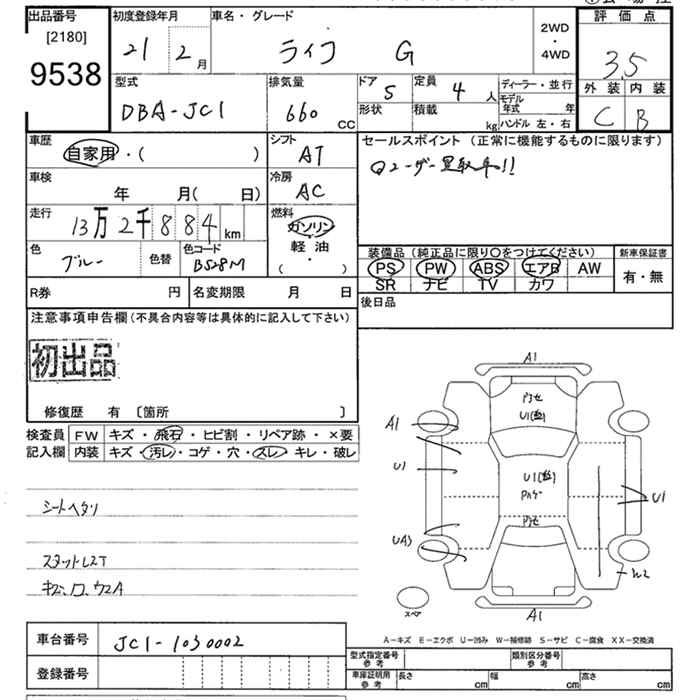 出品番号 初度登録年月 車名・グレード 評価点
[2180]
9538
21 2月 ライフ G 2WD・4WD 3.5
型式 排気量 ドア 5 定員 4人 ディーラー・並行 外装 内装
DBA-JC1 660CC 形状 積載 kg モデル年式 年 C B
ハンドル 左・右
車歴 シフト セールスポイント (正常に機能するものに限ります)
自家用・( ) AT
車検 冷房
年 月( 日) AC
走行 燃料
13万2千884km ガソリン
軽油
( )
色 色替 色コード
ブルー B528M
装備品 (純正品に限り○をつけてください) 新車保証書
PS PW ABS エアB AW 有・無
SR ナビ TV カワ
R券 円 名変期限 月 日 後日品
注意事項申告欄 (不具合内容等は具体的に記入して下さい)
初出品
修復歴 有 〔箇所 〕
検査員記入欄 FW キズ・飛石・ヒビ割・リペア跡・×要
内装 キズ・汚レ・コゲ・穴・スレ・キレ・破レ
A1
A1
U1
U1
U1
W2
A1
スペア
シートヘタリ
A−キズ E−エクボ U−凹み W−補修跡 S−サビ C−腐食 XX−交換済
車台番号 JC1-1030002
登録番号
型式指定番号 参考 類別区分番号 参考
車庫証明用 参考 長さ cm 幅 cm 高さ cm